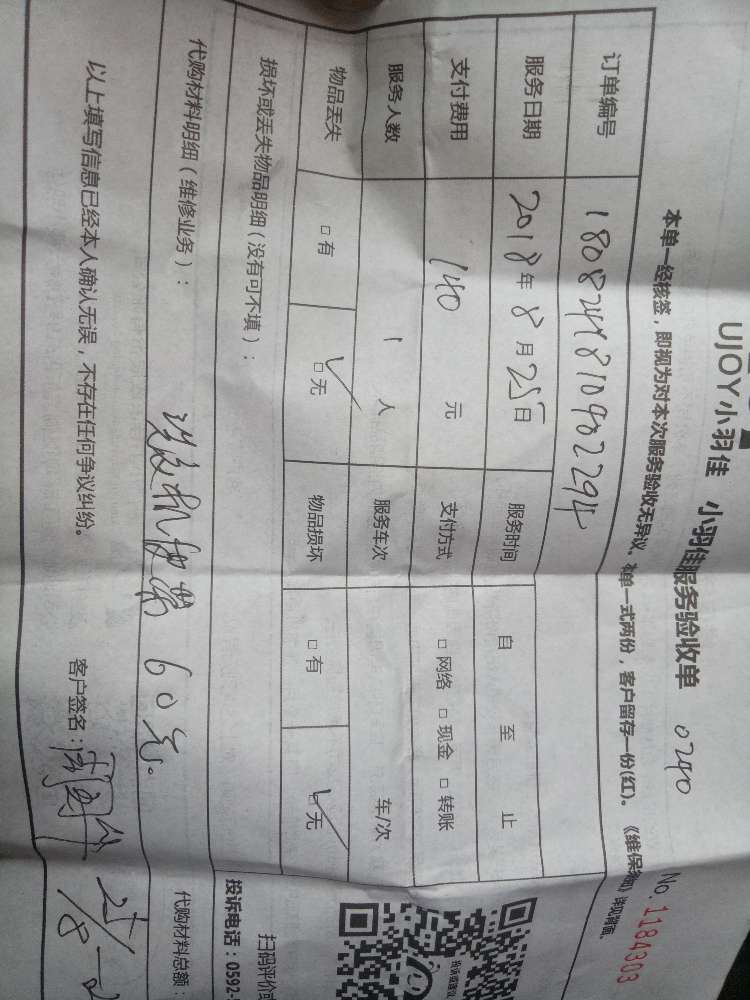 UJOY小羽佳 小羽佳服务验收单 0240
No.1184303
本单一经核签，即视为对本次服务验收无异议、单一式两份，客户留存一份(红)。《维保 》详见背面。
订单编号
服务日期 2018年8月25日 服务时间 自 至 止
支付费用 140元 支付方式 □网络 □现金 □转账
服务人数 1人 服务车次 车/次
物品丢失 □有 □无 物品损坏 □有 □无
损坏或丢失物品明细（没有可不填）：
代购材料明细（维修业务）：
60元.
代购材料总额：
以上填写信息已经本人确认无误，不存在任何争议纠纷。
客户签名：
扫码评价或
投诉电话：0592-